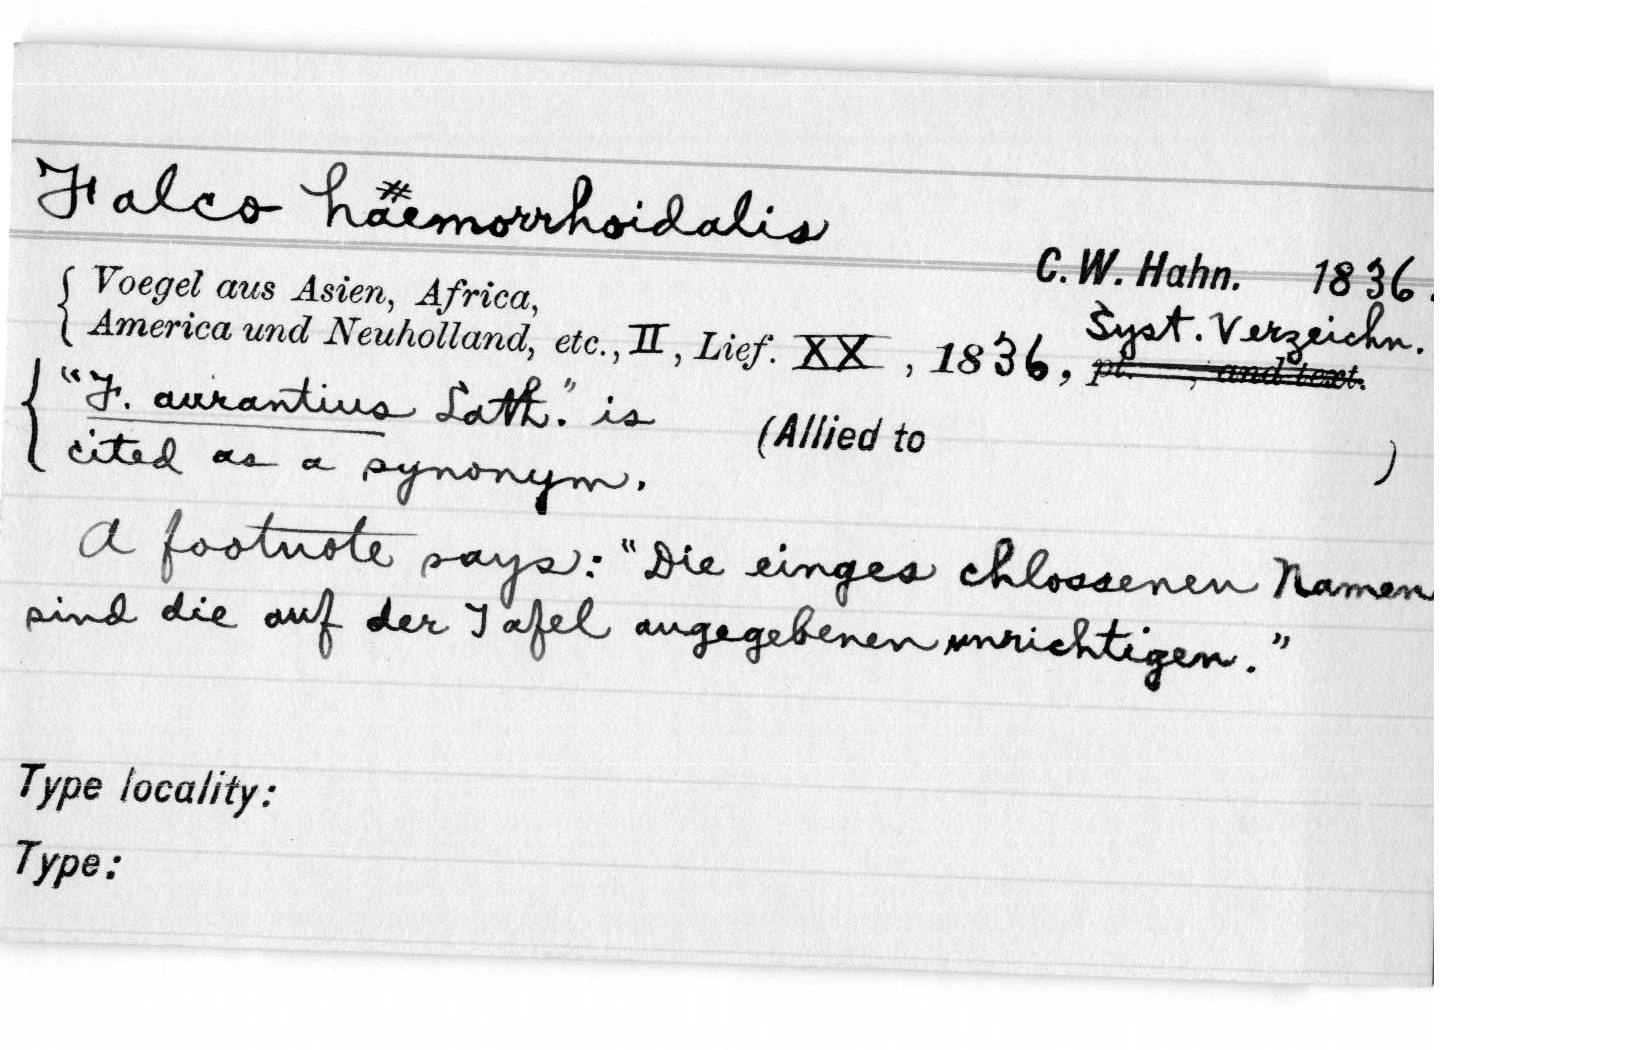 Falco haemorrhoidalis
C. W. Hahn. 1836.
Voegel aus Asien, Africa,
America und Neuholland, etc., II, Lief. XX, 1836, Syst. Verzeichn.
pt. , and text.
"F. aurantius Lath." is
cited as a synonym.
(Allied to )
A footnote says: "Die einges chlossenen Namen
sind die auf der Tafel angegebenen unrichtigen."
Type locality:
Type: